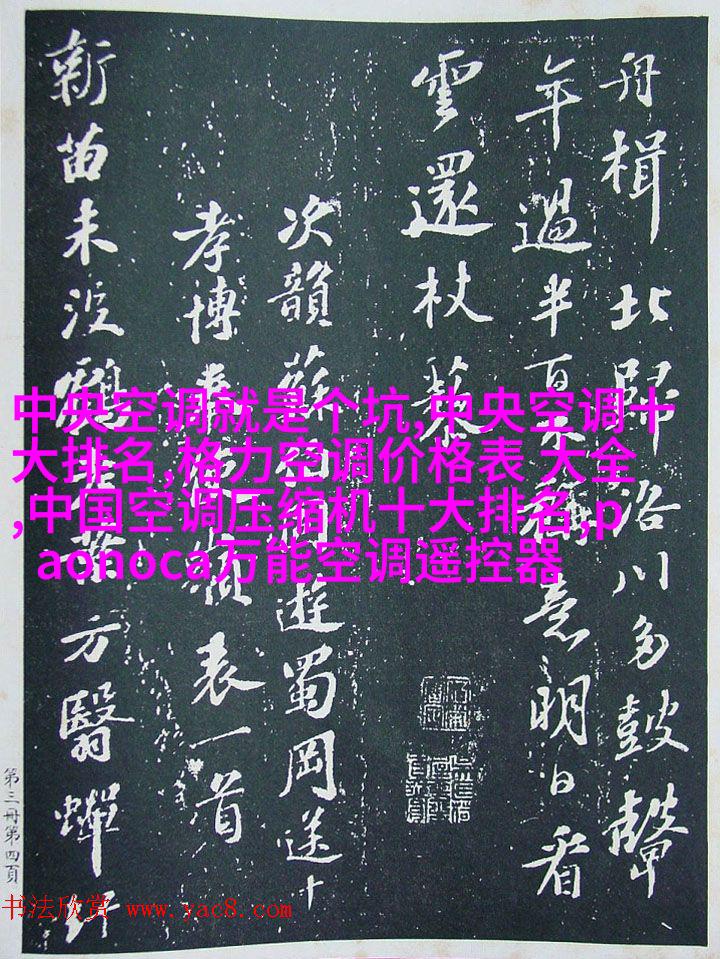 舟楫北歸洛川多鼓聲
年過半百稱意明日看
雲還杖藜
次韻蘇伯固遊蜀岡送
孝博奉使嶺表一首
新苗未没鶴老葉方翳蟬
中央空调就是个坑,中央空调十
大排名,格力空调价格表 大全
,中国空调压缩机十大排名,p
aonoca万能空调遥控器
第三册第四頁
书法欣赏 www.yac8.com